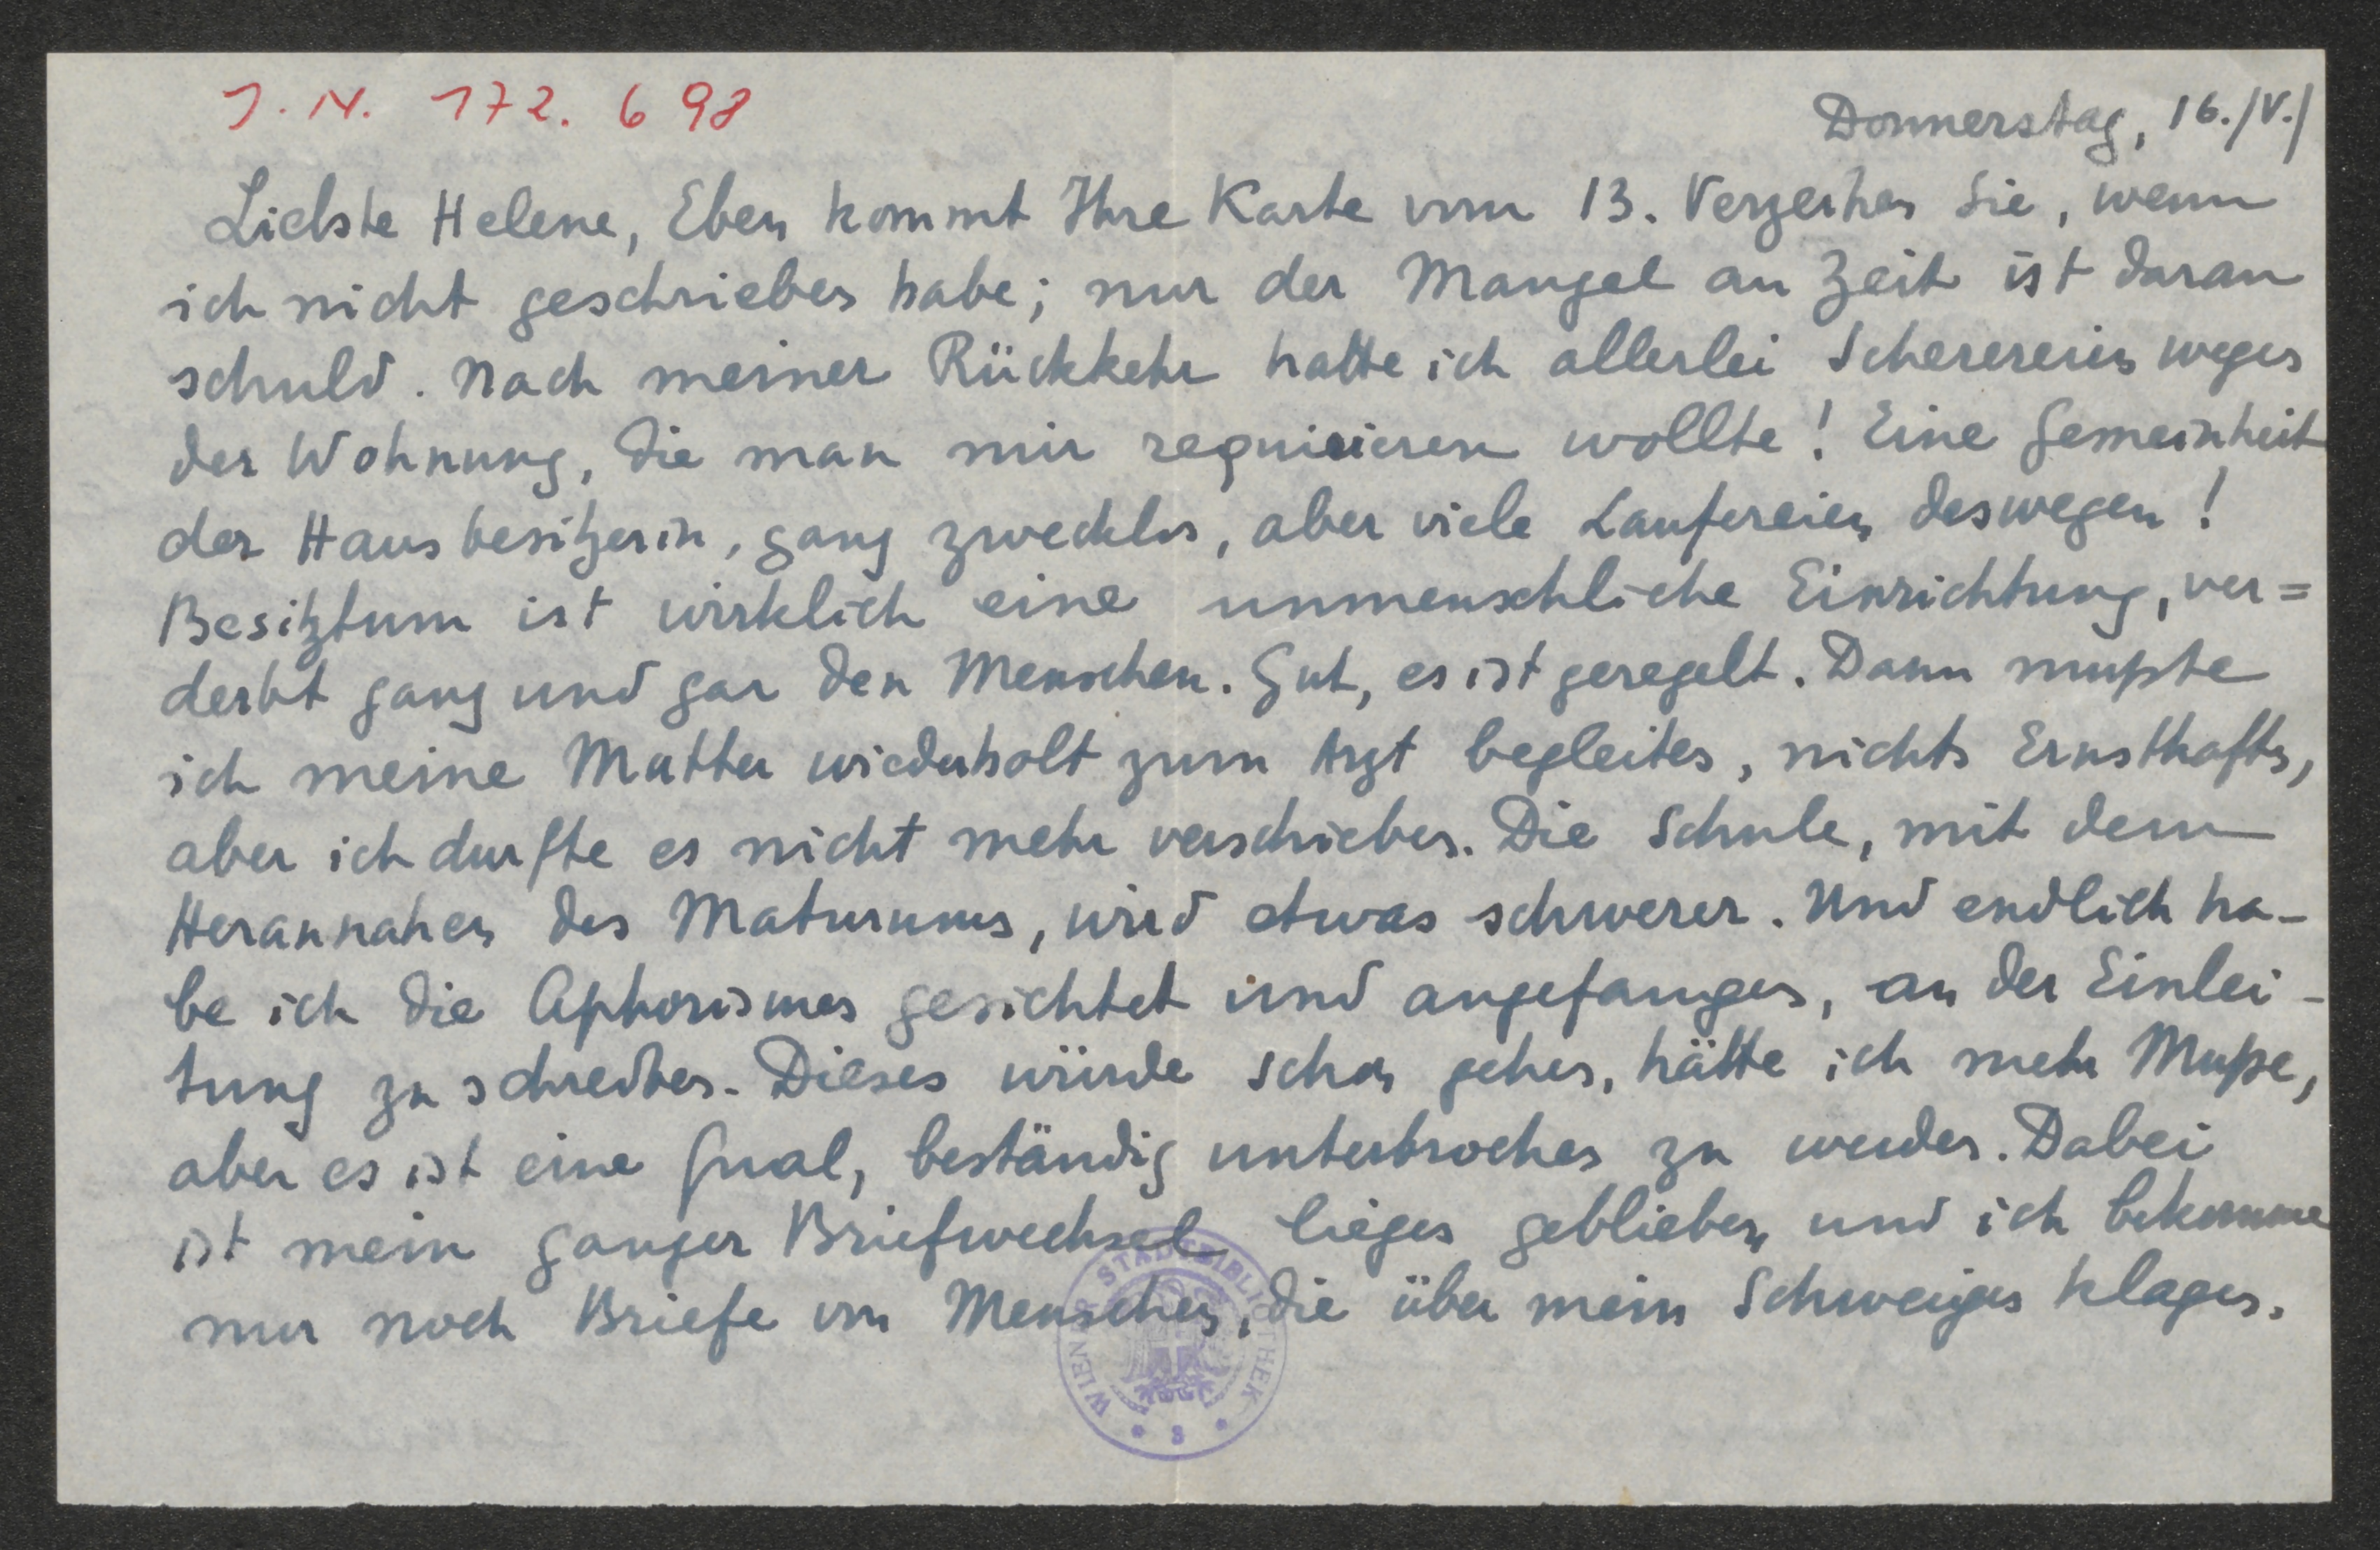 J. N. 172. 698
Donnerstag, 16./V./
Liebste Helene, Eben kommt Ihre Karte vom 13. Verzeihen Sie, wenn
ich nicht geschrieben habe; nur der Mangel an Zeit ist daran
schuld. Nach meiner Rückkehr hatte ich allerlei Scherereien wegen
der Wohnung, die man mir requirieren wollte! Eine Gemeinheit
der Hausbesitzerin, ganz zwecklos, aber viele Laufereien deswegen!
Besitztum ist wirklich eine unmenschliche Einrichtung, ver=
derbt ganz und gar den Menschen. Gut, es ist geregelt. Dann mußte
ich meine Mutter wiederholt zum Arzt begleiten, nichts Ernsthaftes,
aber ich durfte es nicht mehr verschieben. Die Schule, mit dem
Herannahen des Maturums, wird etwas schwerer. Und endlich ha-
be ich die Aphorismen gesichtet und angefangen, an der Einlei-
tung zu schreiben. Dieses würde schon gehen, hätte ich mehr Muße,
aber es ist eine Qual, beständig unterbrochen zu werden. Dabei
ist mein ganzer Briefwechsel liegen geblieben und ich bekomme
nur noch Briefe von Menschen, die über mein Schweigen klagen.
WIENER STADTBIBLIOTHEK